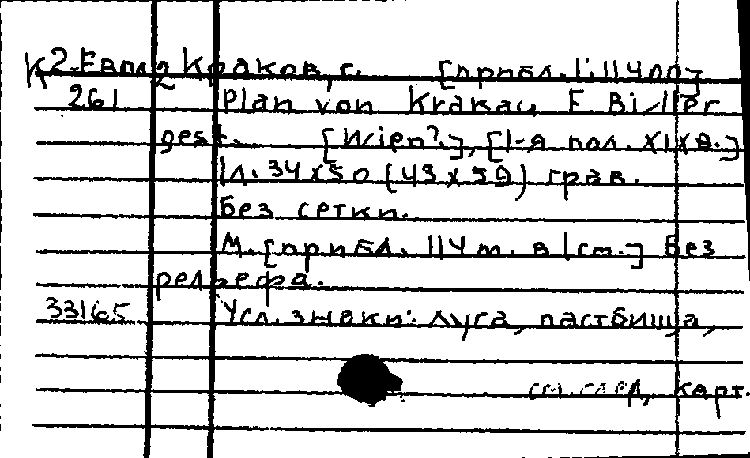 К2-Евпл2 Краков, г. [прибл. 1:11400]
261 Plan von Krakau, F. Biller
gest. [Wien?], [1-я пол. XIX в.]
1 л. 34 x 50 (43 x 59) грав.
Без сетки.
М. [прибл. 114 м. в 1 см.] Без
рельефа.
33165 Усл. знаки: луга, пастбища,
см. след. карт.